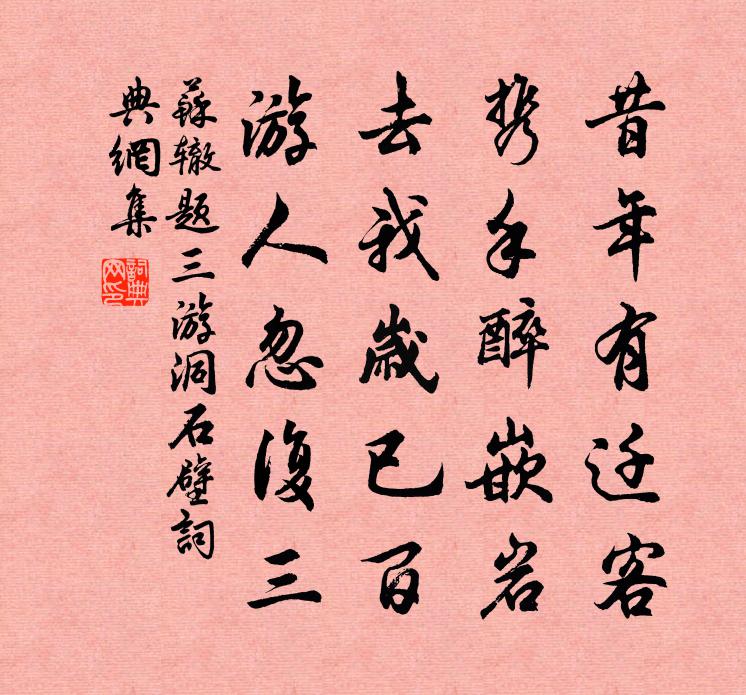 昔年有迁客
携手醉嵌岩
去我歲已百
游人忽復三
蘇辙题三游洞石壁詞
典網集
詞典
网印